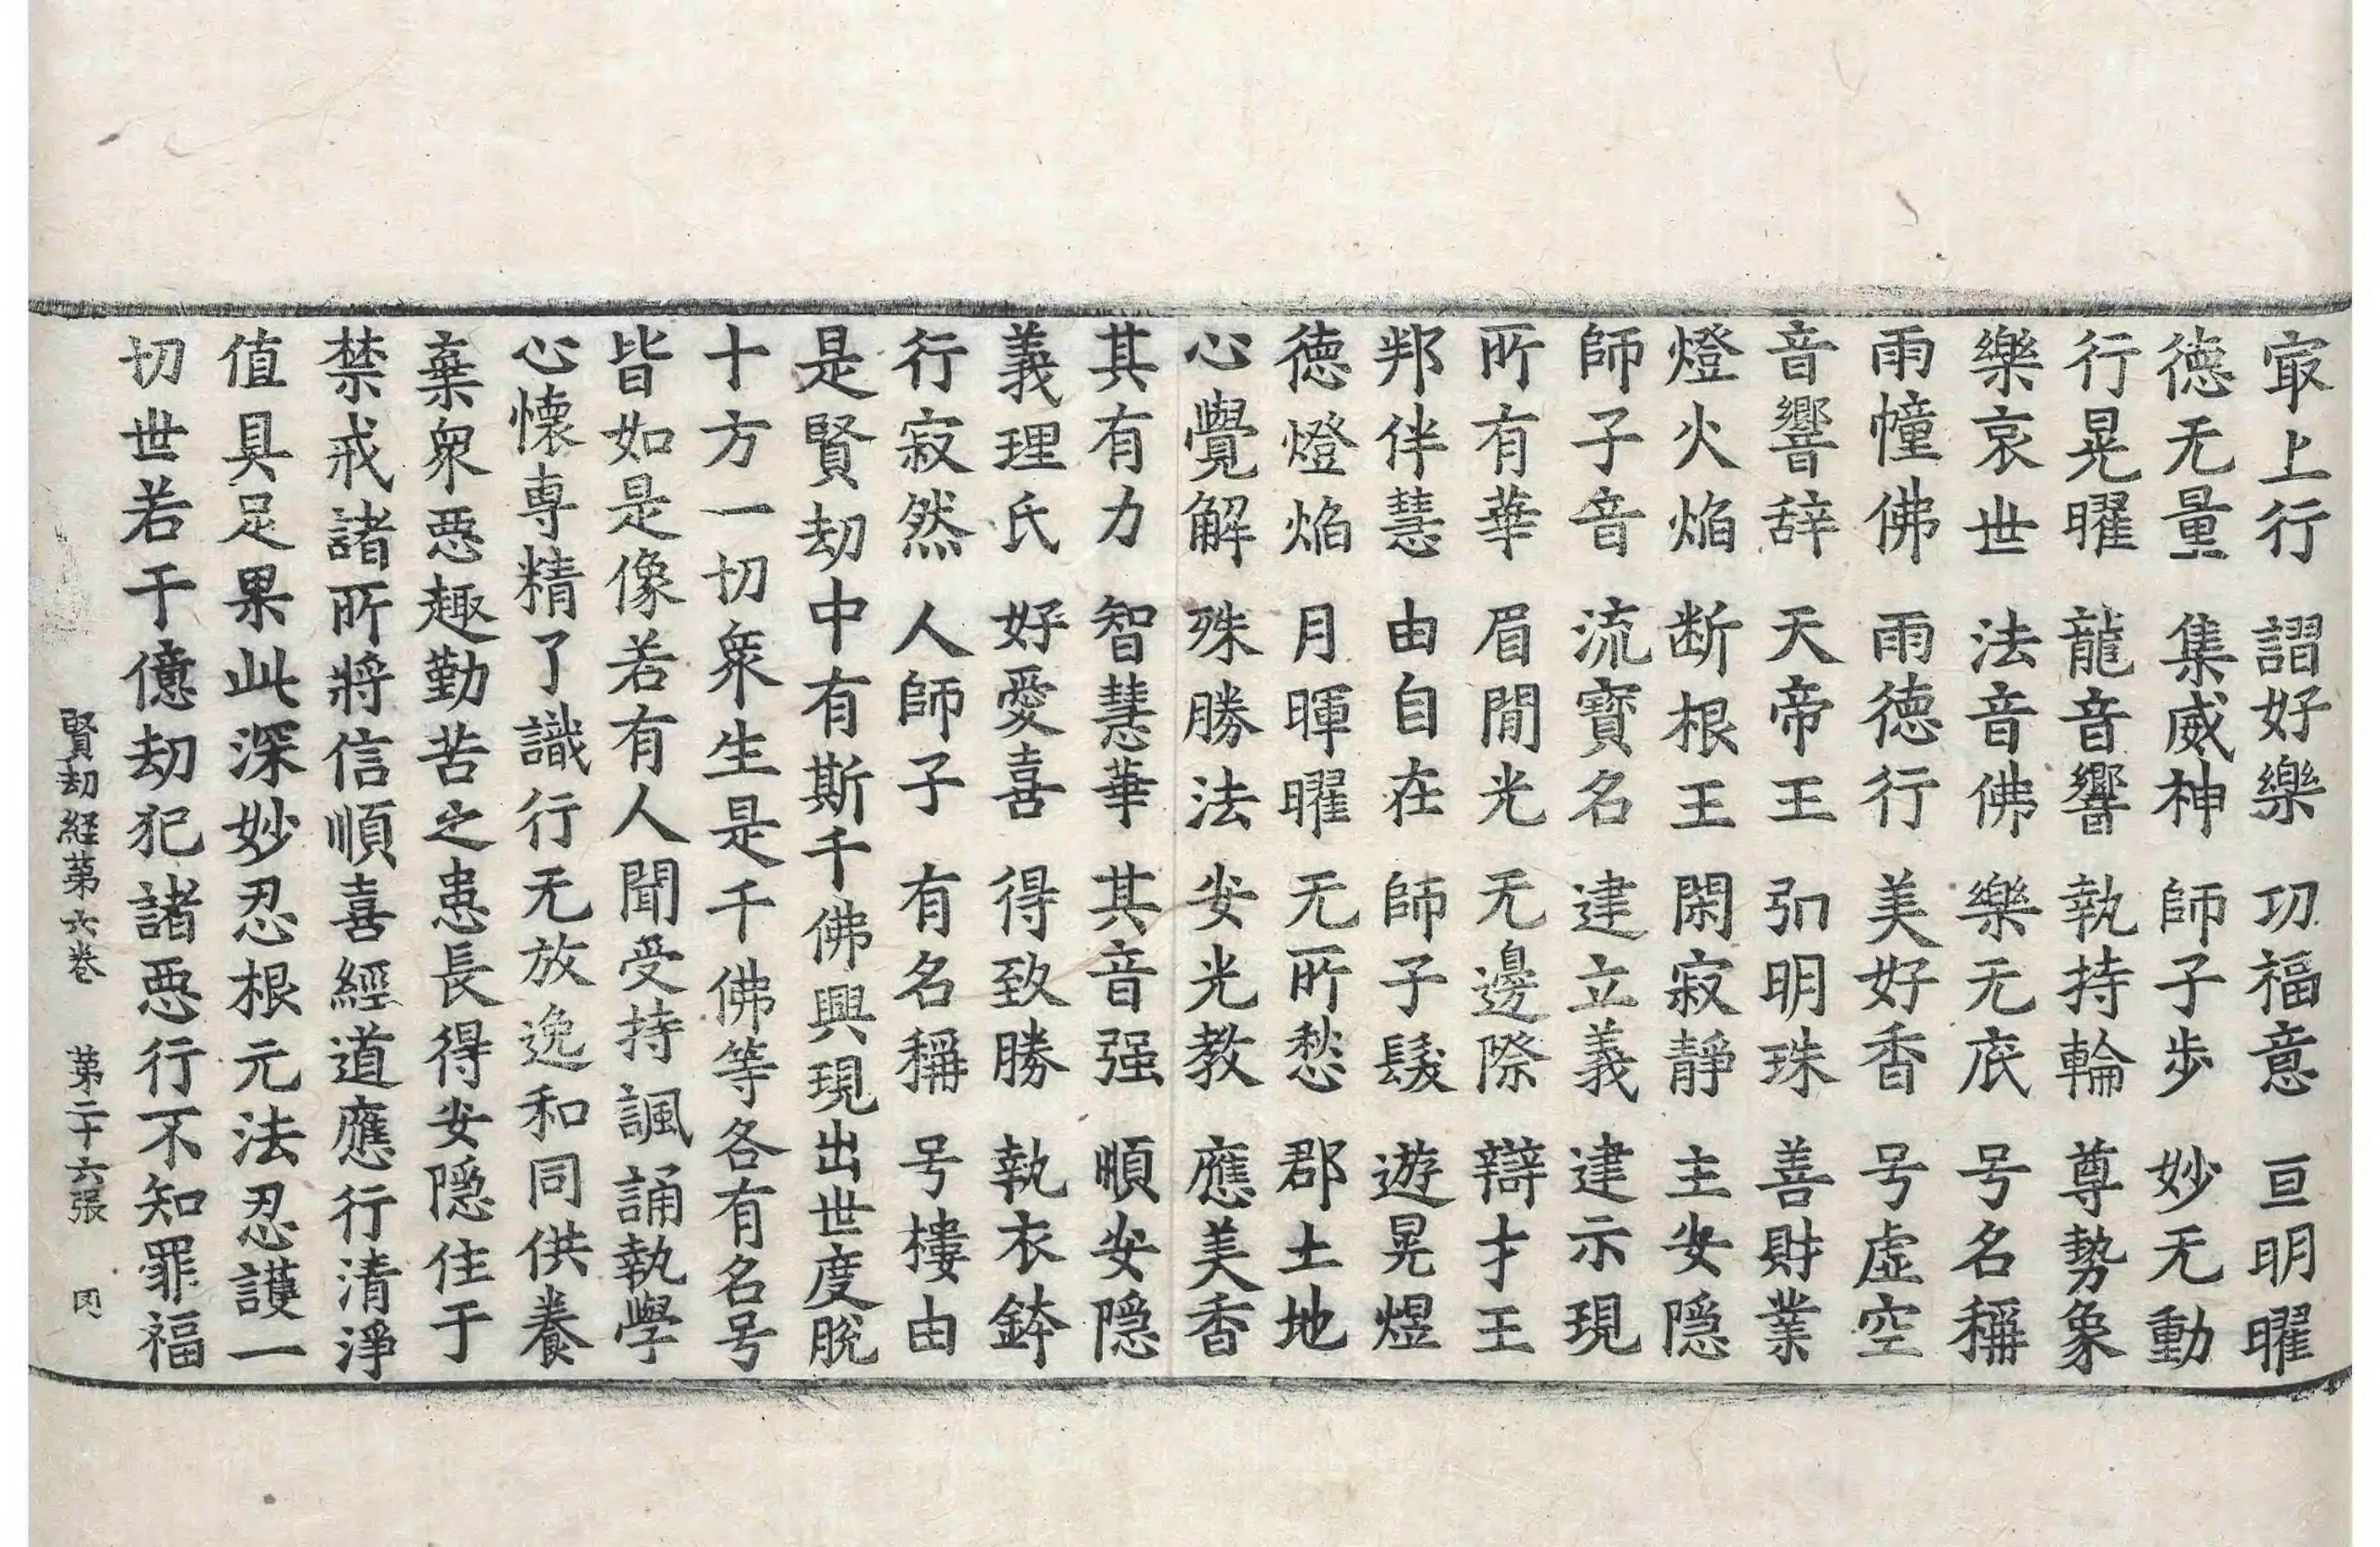 冣上行 謵好樂 功福意 亘明曜
德无量 集威神 師子步 妙无動
行晃曜 龍音響 執持輪 尊勢象
樂哀世 法音佛 樂无底 号名稱
雨幢佛 雨德行 美好香 号虚空
音響辞 天帝王 弘明珠 善財業
燈火焰 断根王 閑寂靜 主安隱
師子音 流寶名 建立義 建示現
所有華 眉間光 无邊際 辯才王
邦伴慧 由自在 師子髮 遊晃煜
德燈焰 月暉曜 无所愁 郡土地
心覺解 殊勝法 安光教 應美香
其有力 智慧華 其音强 順安隱
義理氏 好愛喜 得致勝 執衣鉢
行寂然 人師子 有名稱 号樓由
是賢劫中有斯千佛興現出世度脫
十方一切衆生是千佛等各有名号
皆如是像若有人聞受持諷誦執學
心懷専精了識行无放逸和同供養
棄衆惡趣勤苦之患長得安隱住于
禁戒諸所將信順喜經道應行清淨
值具足果此深妙忍根元法忍護一
切世若干億劫犯諸惡行不知罪福
賢劫経苐六卷 苐二十六張